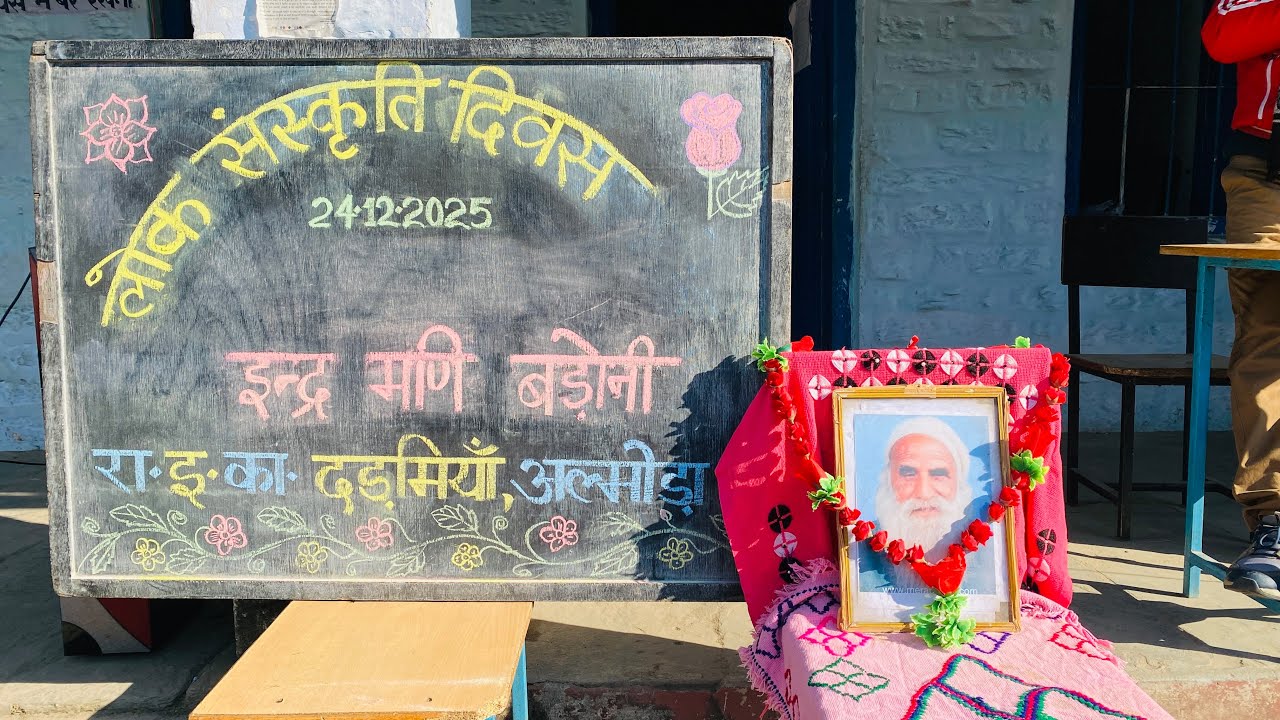 लोक संस्कृति दिवस
24·12·2025
इन्द्र मणि बड़ोनी
रा·इ·का· दड़मियाँ, अल्मोड़ा